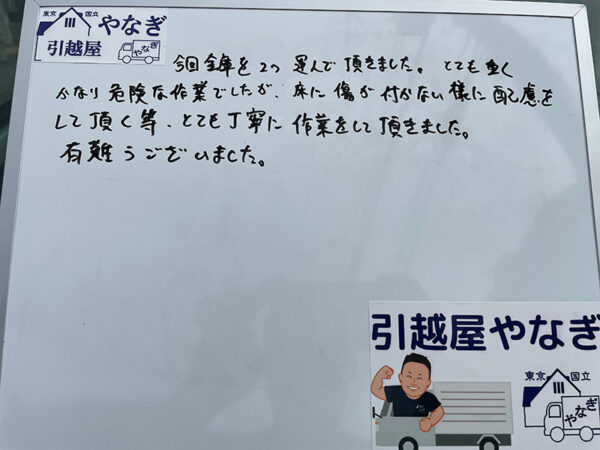 東京 国立
やなぎ
引越屋
やなぎ
今回金庫を2つ 運んで頂きました。 とても重く
かなり危険な作業でしたが、床に傷が付かない様に配慮を
して頂く等、とても丁寧に作業をして頂きました。
有難うございました。
引越屋やなぎ
東京 国立
やなぎ